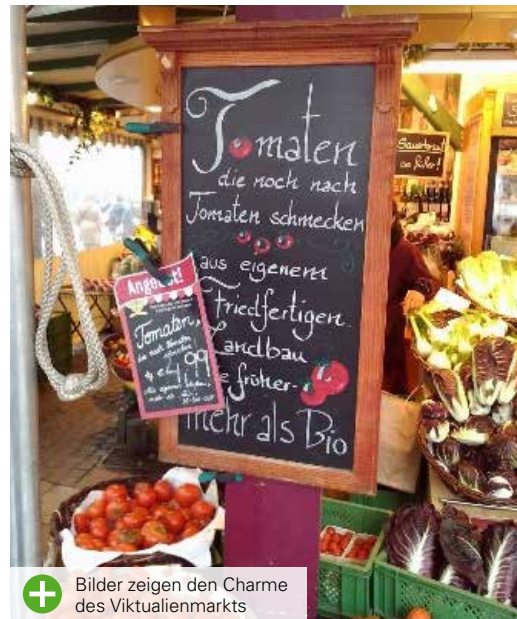 Tomaten
die noch nach
Tomaten schmecken
aus eigenem
Friedfertigen
Landbau
früher-
mehr als Bio
Angebot!
Tomaten,
die nach Tomaten
schmecken
kg € 4,99
Sauerkraut
Bilder zeigen den Charme
des Viktualienmarkts